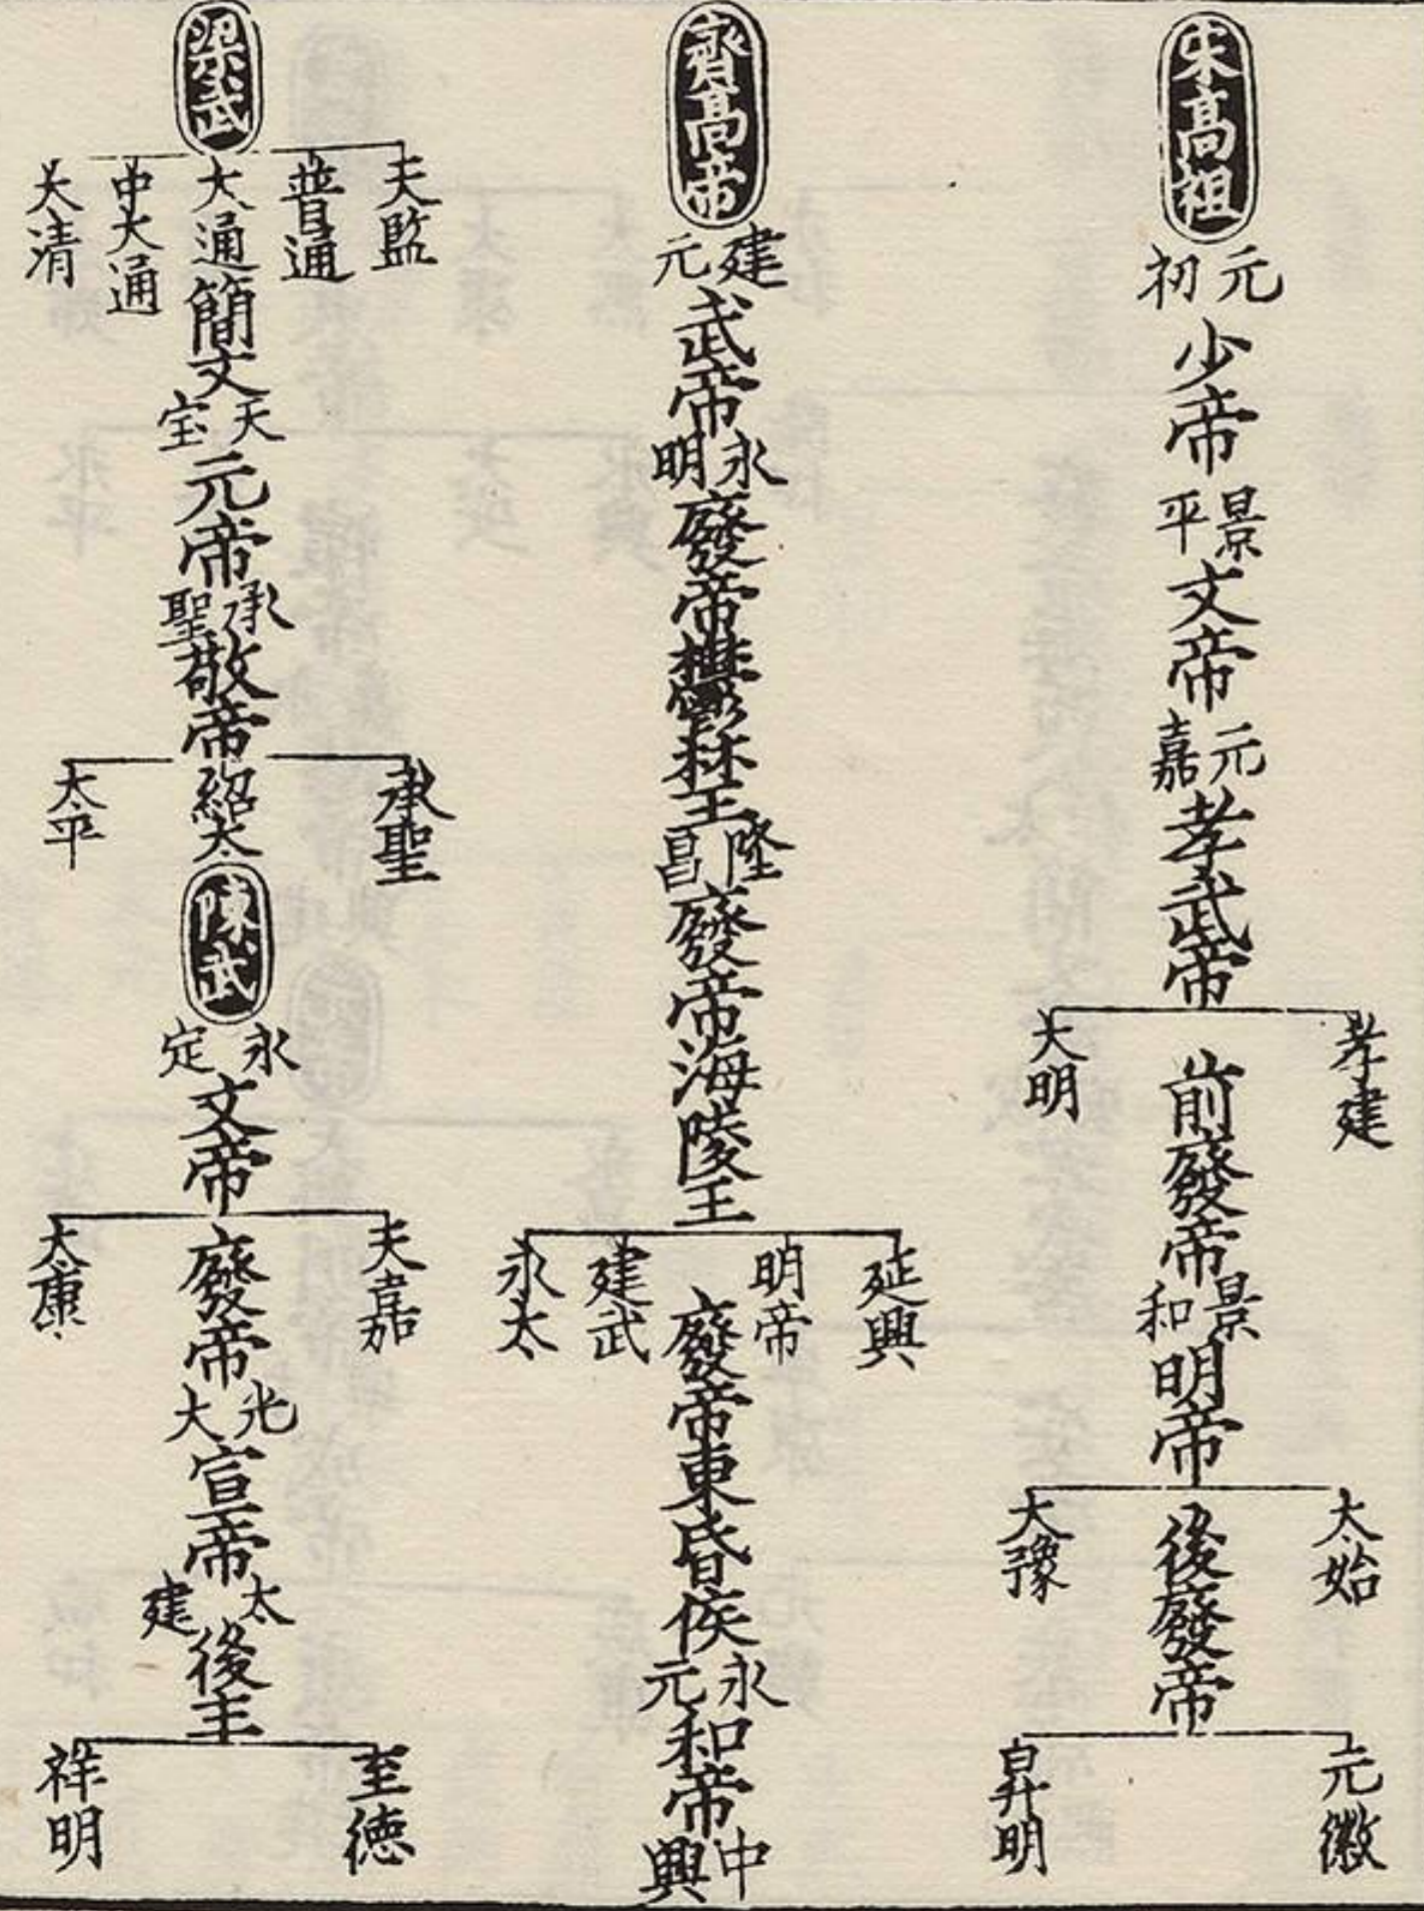 宋高祖
元初
少帝
景平
文帝
元嘉
孝武帝
孝建
大明
前廢帝
景和
明帝
太始
大豫
後廢帝
元徽
昇明
齊高帝
建元
武帝
永明
廢帝欝林王
隆昌
廢帝海陵王
延興
明帝
建武
永太
廢帝東昏侯
永元
和帝
中興
梁武
天監
普通
大通
中大通
太清
簡文
天宝
元帝
承聖
敬帝
承聖
紹太
太平
陳武
永定
文帝
天嘉
大康
廢帝
光大
宣帝
太建
後主
至徳
祥明